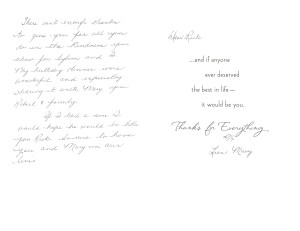 There isn't enough thanks
to give you for all you
do or the kindness you
show for
My birthday dinner was
wonderful and especially
sharing it with Mary you
& family.
If I had a son I
would hope he would be like
you to have
you and Mary in our
lives
Dear
...and if anyone
ever deserved
the best in life—
it would be you.
Thanks for Everything
Love